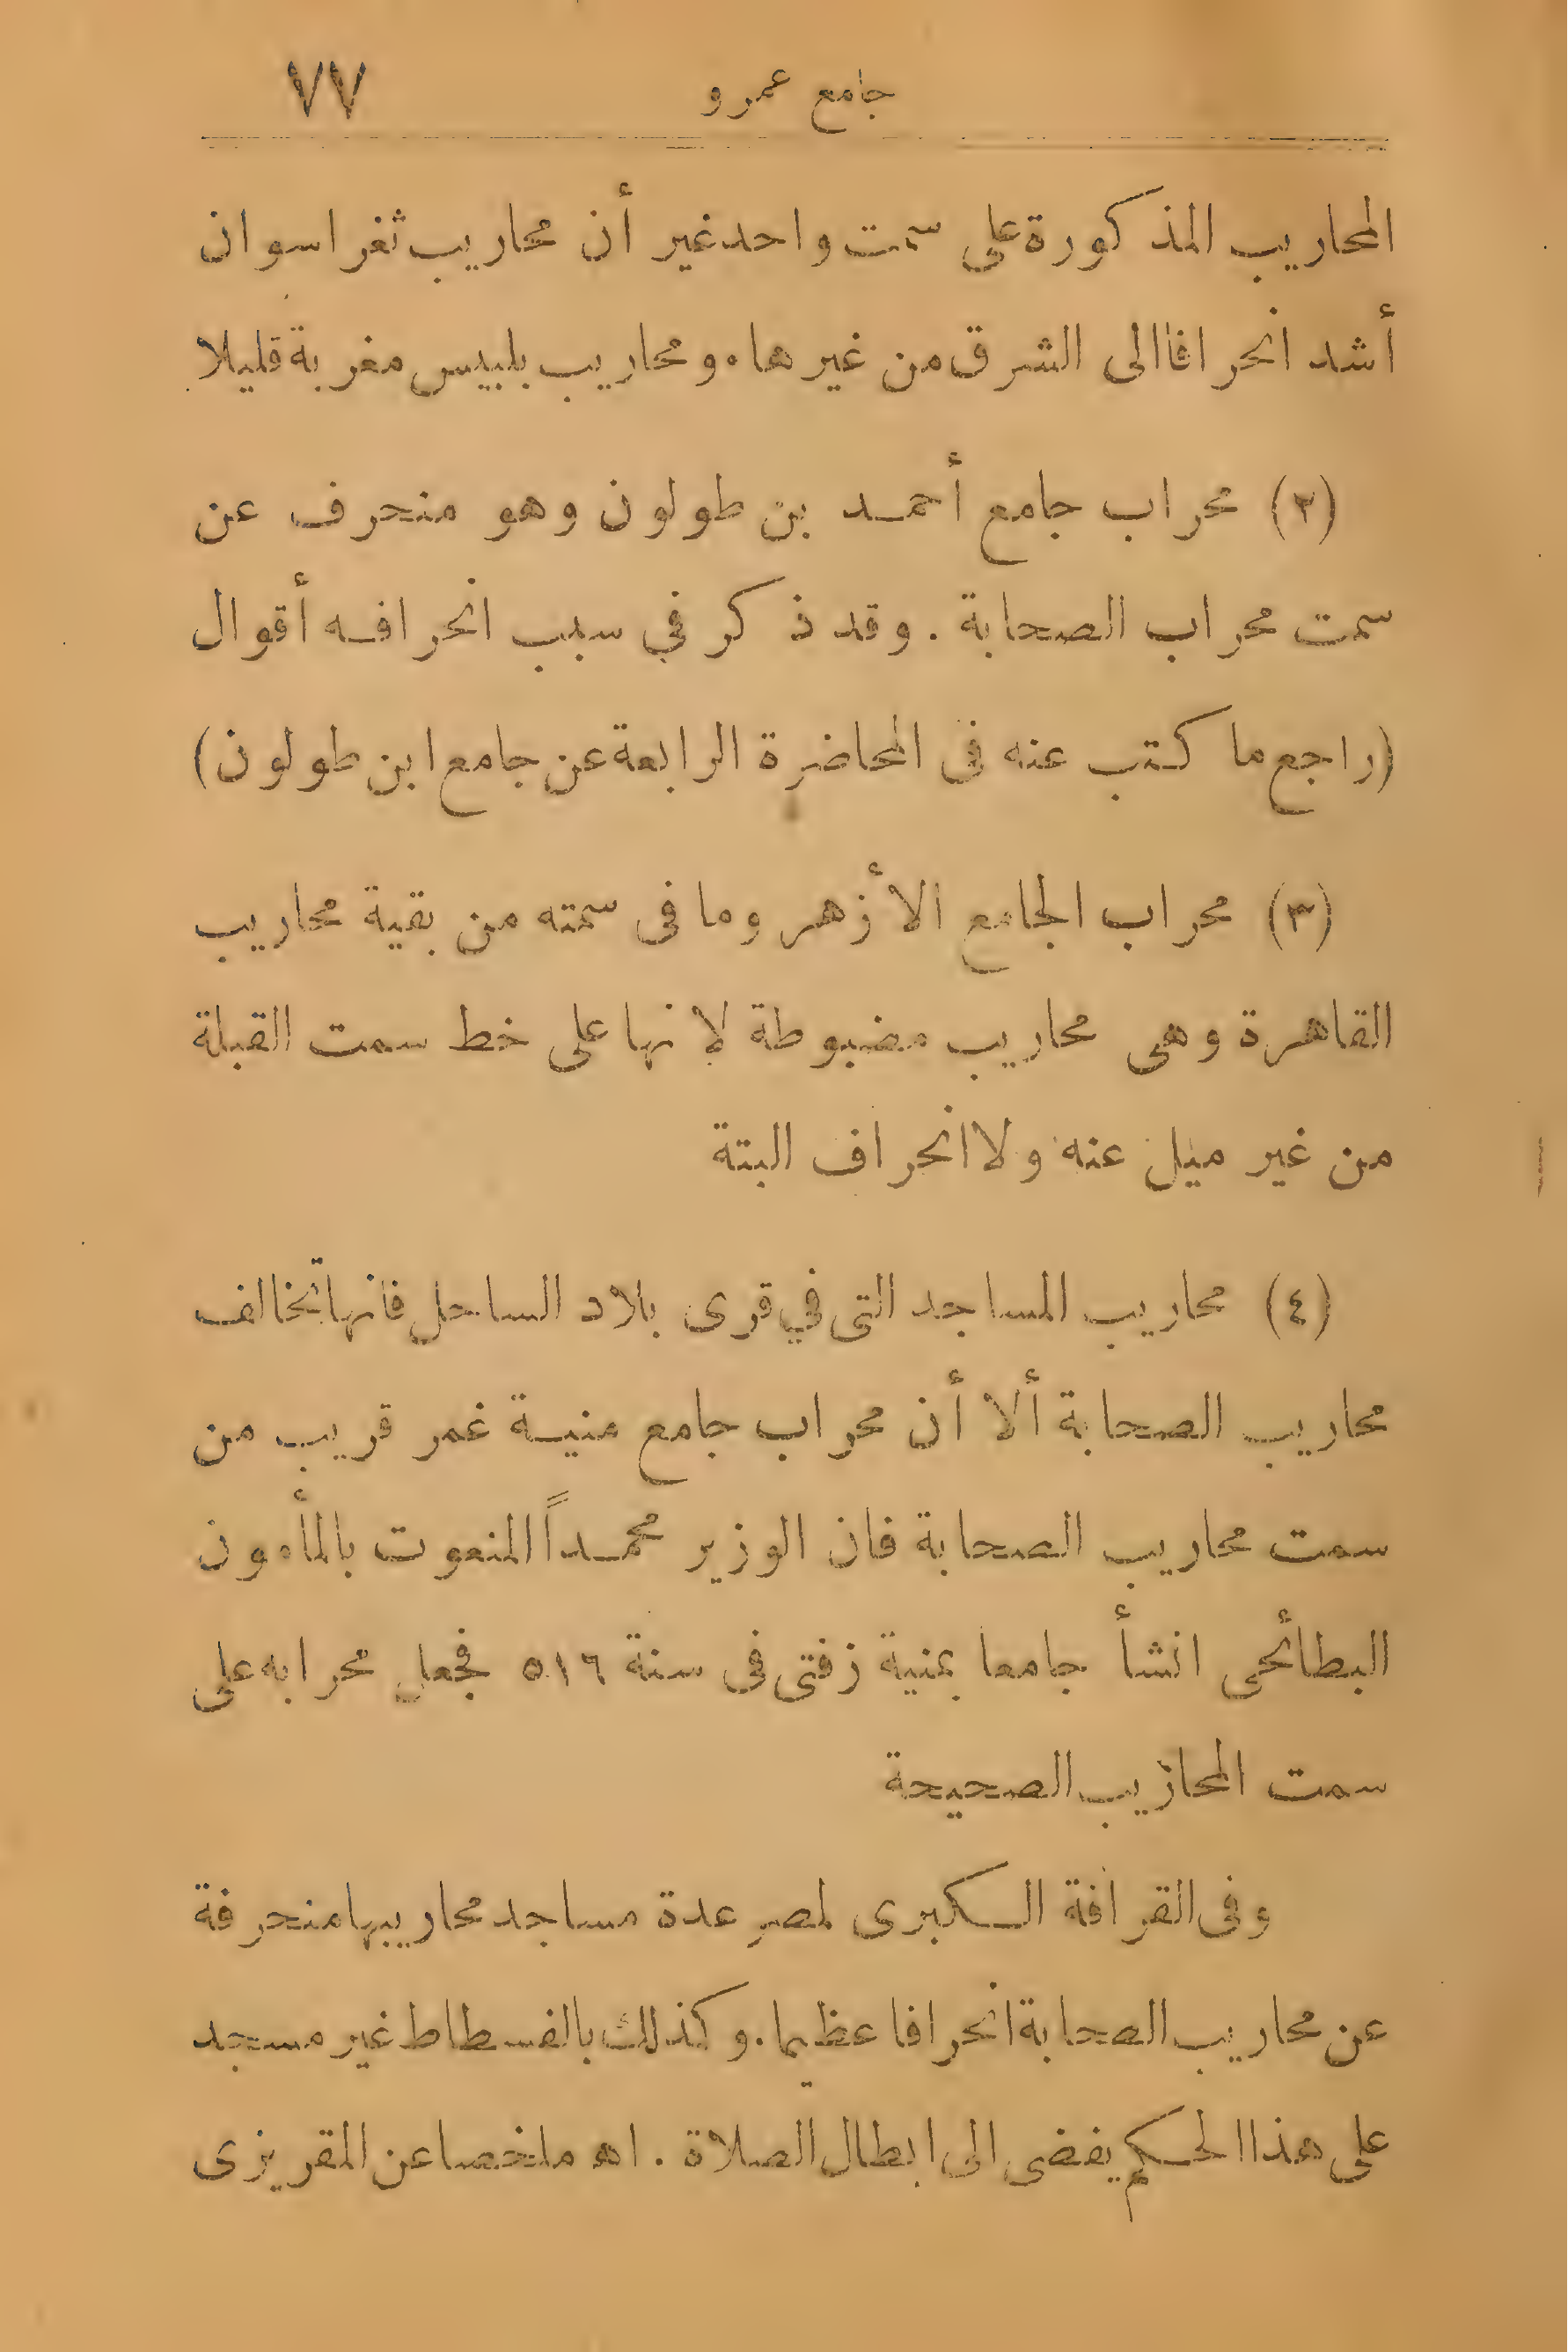 جامع عمرو ٧٧
المحاريب المذكورة على سمت واحد غير أن محاريب ثغر اسوان
أشد انحرافا الى الشرق من غيرها . ومحاريب بلبيس مغربة قليلا
(٢) محراب جامع أحمد بن طولون وهو منحرف عن
سمت محراب الصحابة . وقد ذكر في سبب انحرافه أقوال
(راجع ما كتب عنه فى المحاضرة الرابعة عن جامع ابن طولون)
(٣) محراب الجامع الأزهر وما فى سمته من بقية محاريب
القاهرة وهى محاريب مضبوطة لانها على خط سمت القبلة
من غير ميل عنه ولا انحراف البتة
(٤) محاريب المساجد التى في قرى بلاد الساحل فانها تخالف
محاريب الصحابة ألا أن محراب جامع منية غمر قريب من
سمت محاريب الصحابة فان الوزير محمداً المنعوت بالمأمون
البطائحى انشأ جامعا بمنية زفتى فى سنة ٥١٦ فجعل محرابه على
سمت المحاريب الصحيحة
وفى القرافة الكبرى لمصر عدة مساجد محاريبها منحرفة
عن محاريب الصحابة انحرافا عظيما . وكذلك بالفسطاط غير مسجد
على هذا الحكم يفضى الى ابطال الصلاة . اه ملخصا عن المقريزى